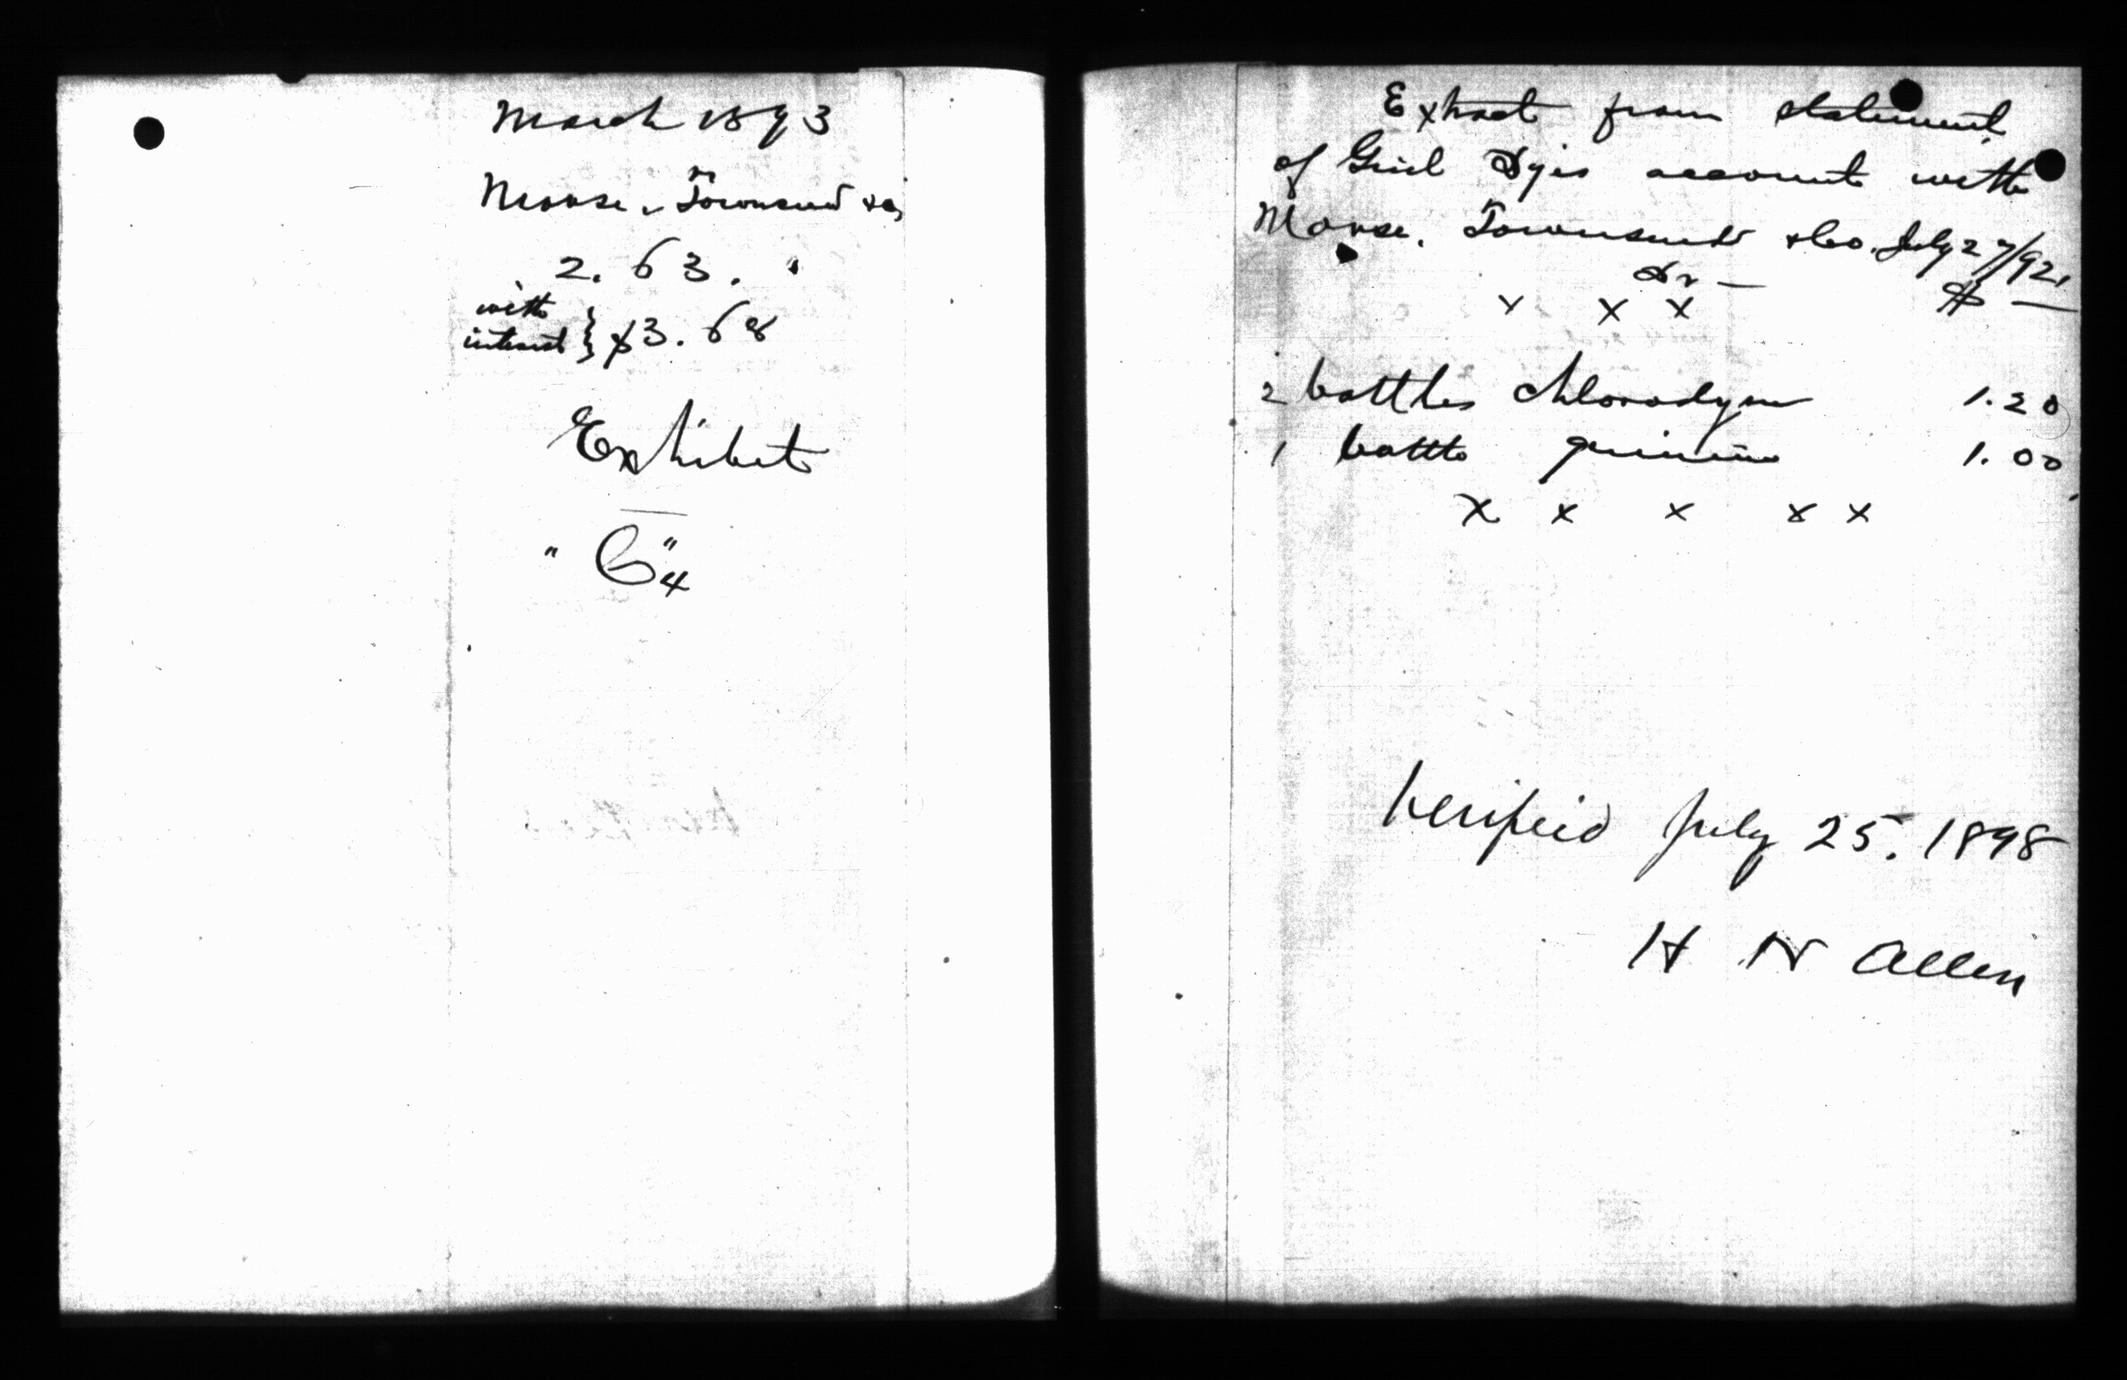 March 1893
Morse, Townsend & Co,
2.63.
with
interest } $3.68
Exhibit
"C"4
Extract from statement
of Gust Dyis account with
Morse, Townsend & Co. July 27/92,
Dr — $ —
x x x
2 bottles chlorodyne 1.20
1 bottle quinine 1.00
x x x x x
Verified July 25, 1898
H N Allen